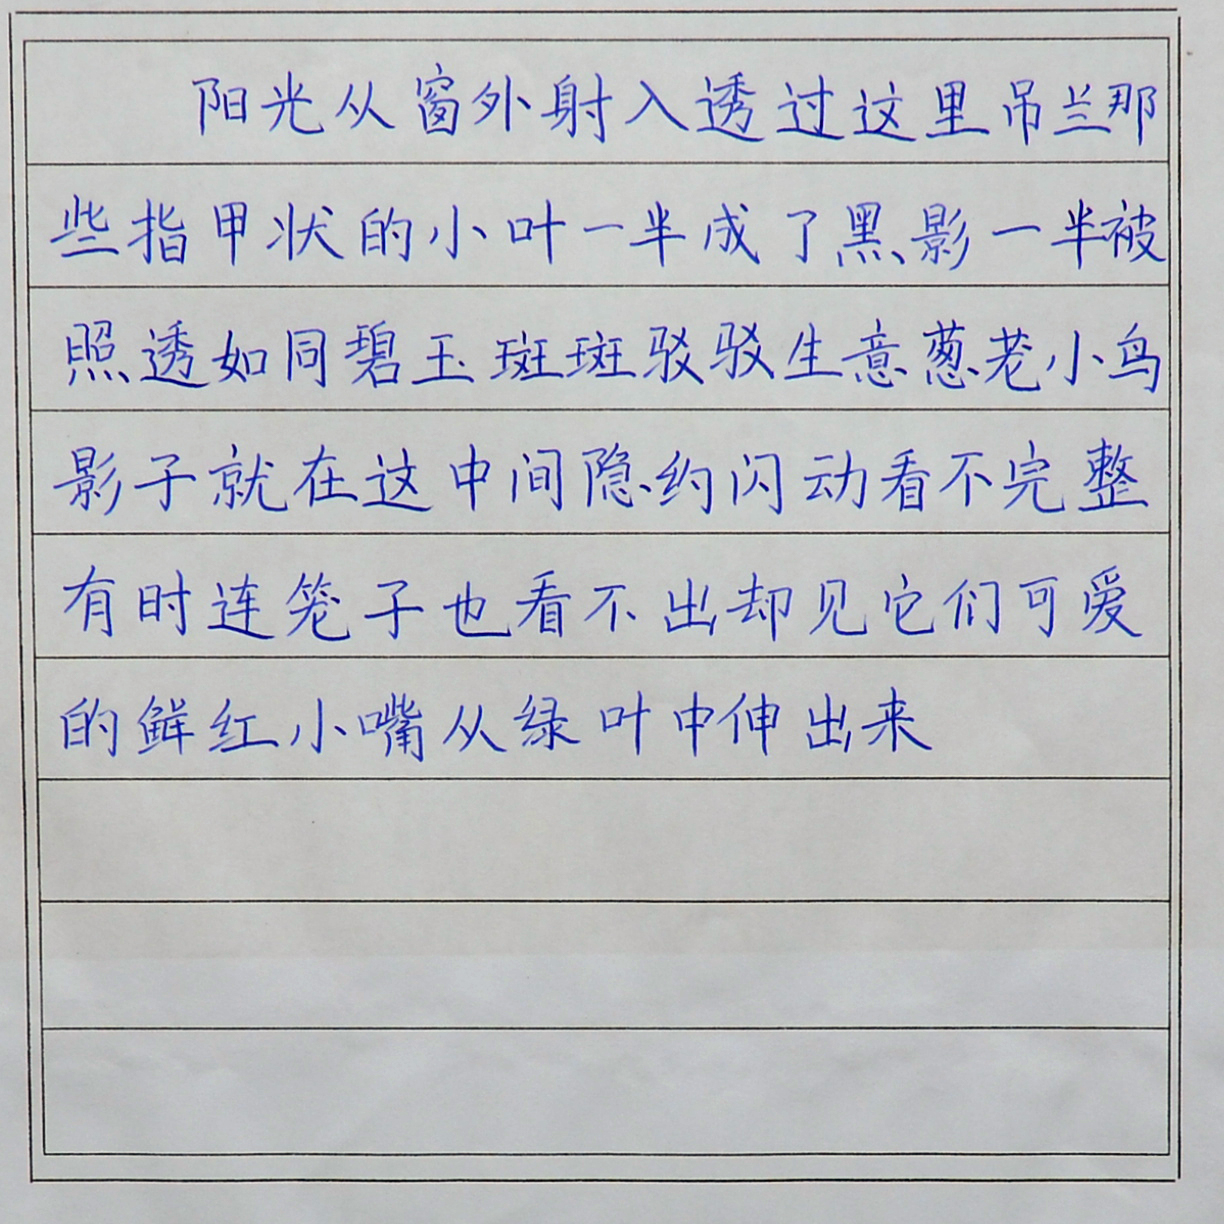 阳光从窗外射入透过这里吊兰那
些指甲状的小叶一半成了黑影一半被
照透如同碧玉斑斑驳驳生意葱茏小鸟
影子就在这中间隐约闪动看不完整
有时连笼子也看不出却见它们可爱
的鲜红小嘴从绿叶中伸出来